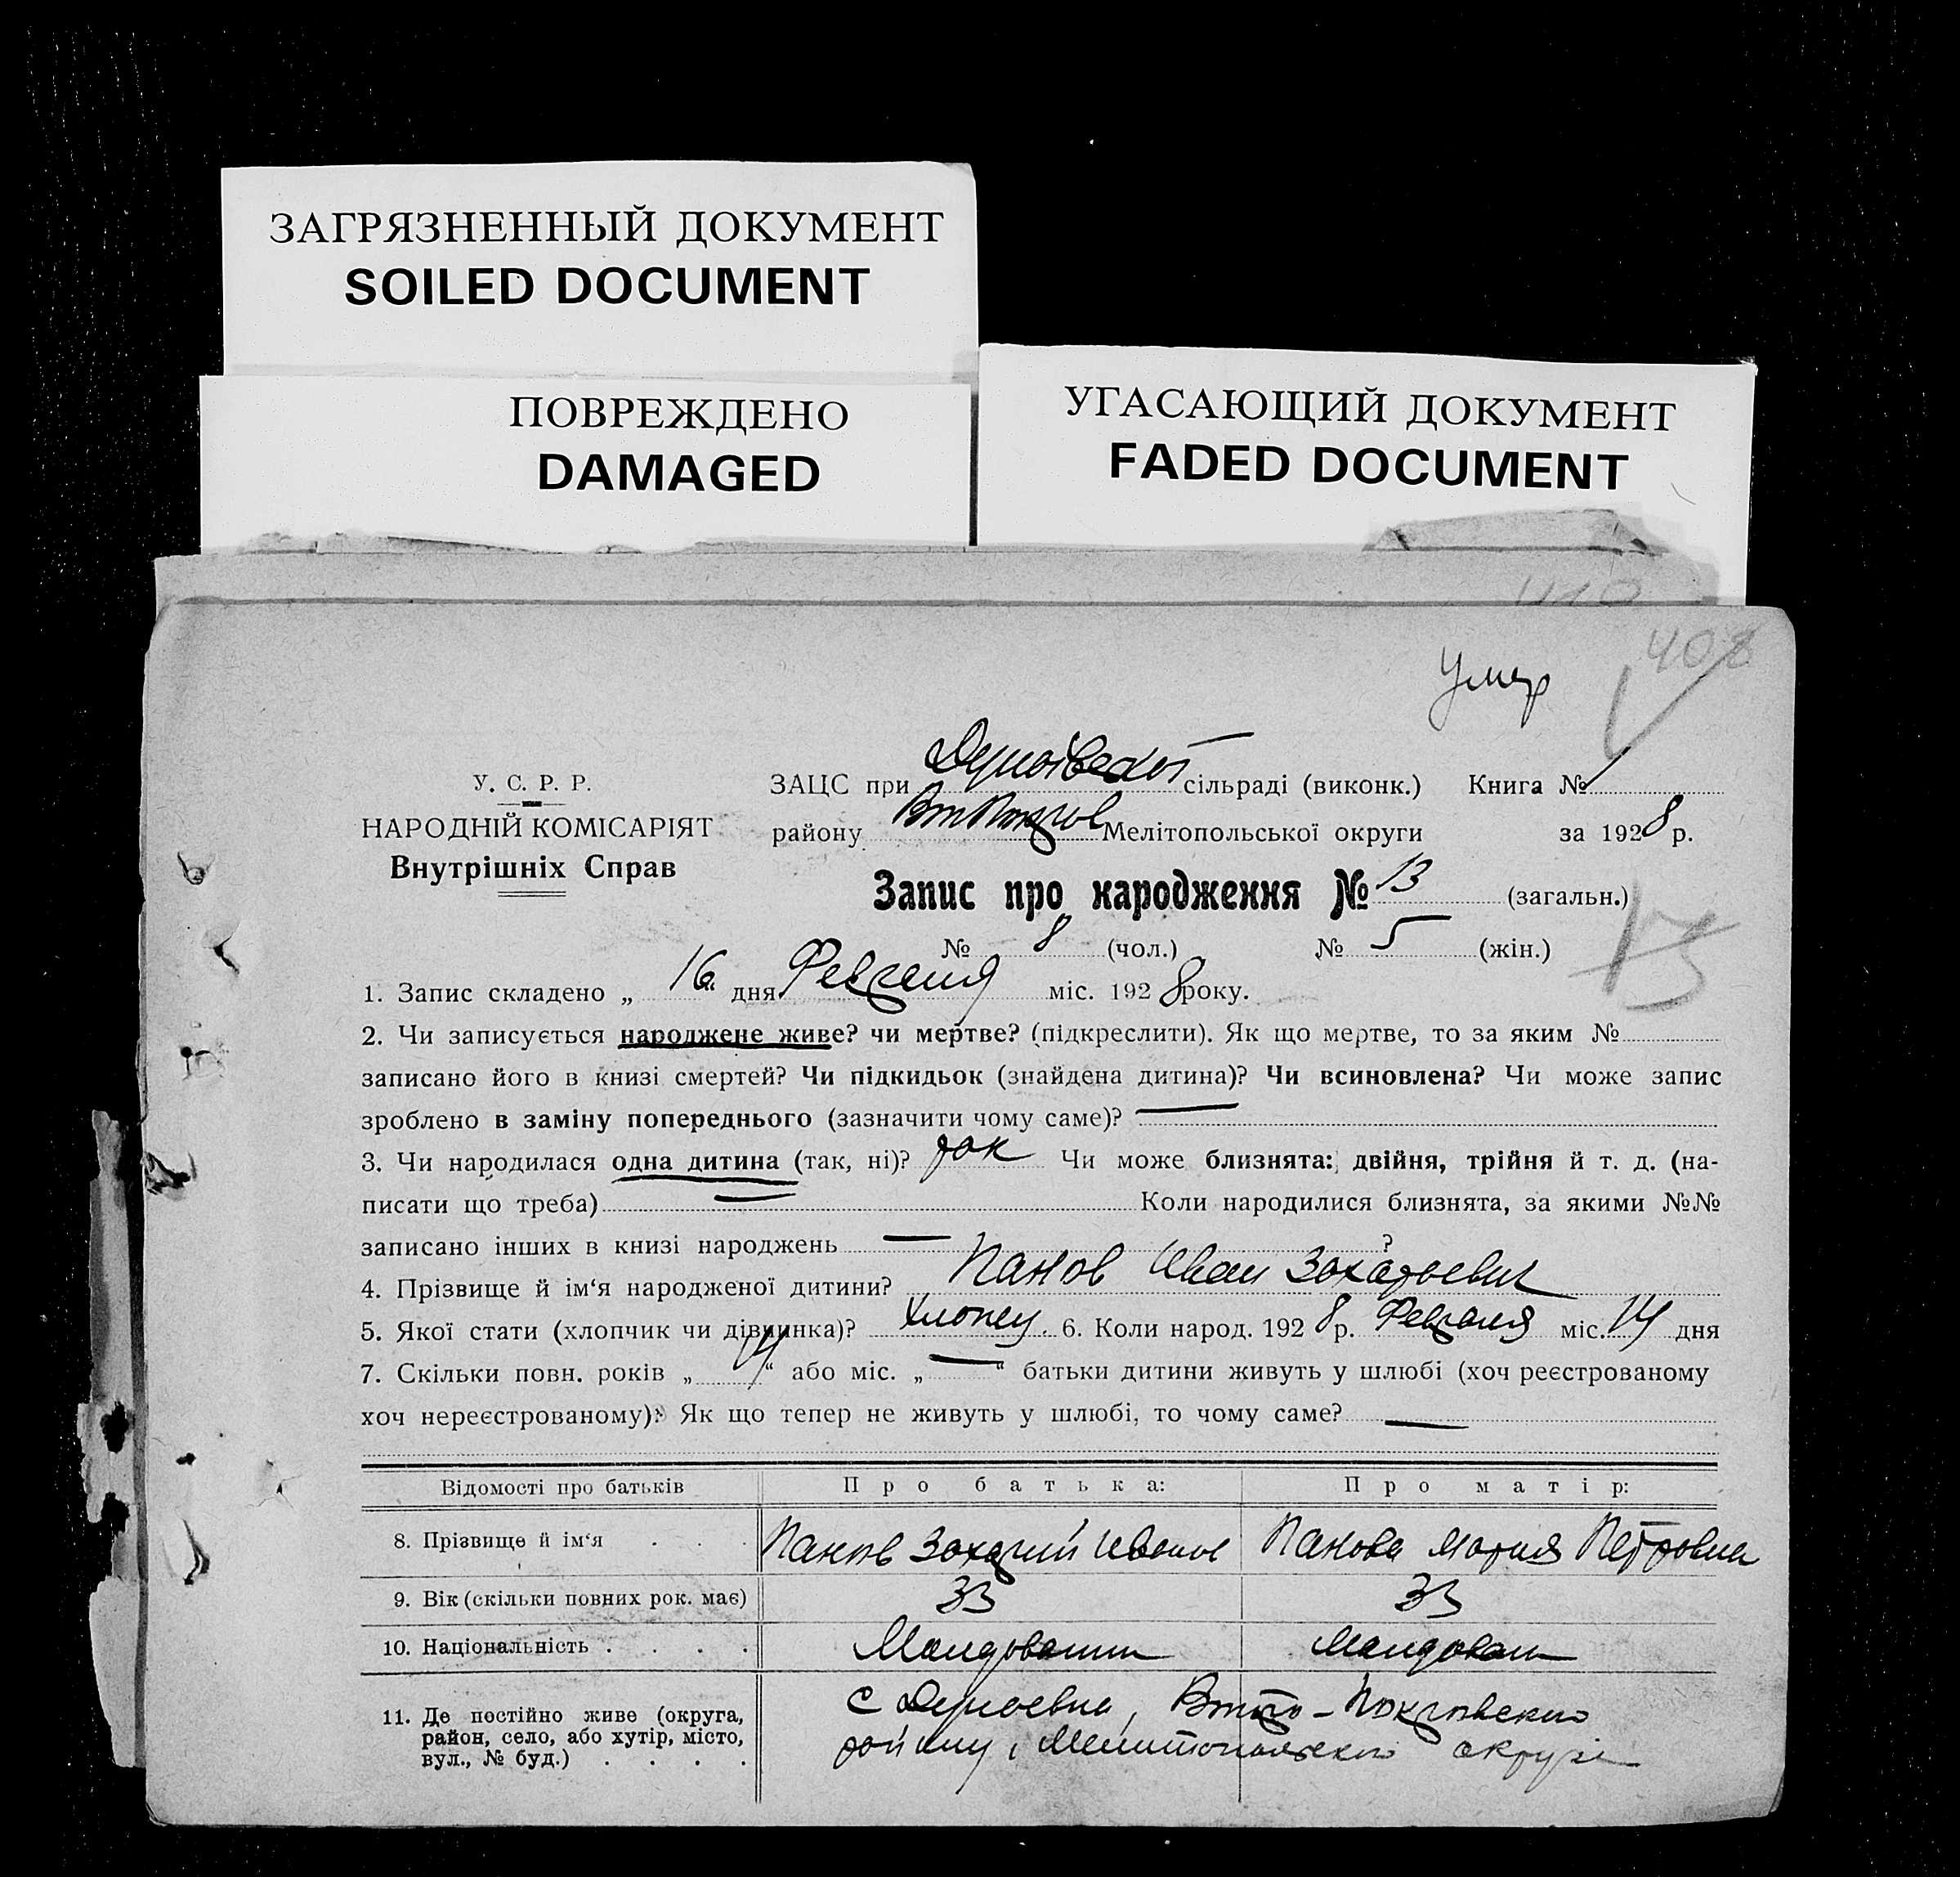 ЗАГРЯЗНЕННЫЙ ДОКУМЕНТ
SOILED DOCUMENT
ПОВРЕЖДЕНО
DAMAGED
УГАСАЮЩИЙ ДОКУМЕНТ
FADED DOCUMENT
408
Умер
У. С. Р. Р.
НАРОДНІЙ КОМІСАРІЯТ
Внутрішніх Справ
ЗАЦС при сільраді (виконк.) Книга № 1
району Втпокров Мелітопольської округи за 1928 р.
Запис про народження № 13 (загальн.)
№ 8 (чол.) № 5 (жін.)
13
1. Запис складено „ 16 “ дня Февраля міс. 1928 року.
2. Чи записується народжене живе? чи мертве? (підкреслити). Як що мертве, то за яким №
записано його в книзі смертей? Чи підкидьок (знайдена дитина)? Чи всиновлена? Чи може запис
зроблено в заміну попереднього (зазначити чому саме)? —
3. Чи народилася одна дитина (так, ні)? Чи може близнята: двійня, трійня й т. д. (на-
писати що треба) — Коли народилися близнята, за якими №№
записано інших в книзі народжень — ?
4. Прізвище й ім‘я народженої дитини? Панов Иван Захарьевич
5. Якої стати (хлопчик чи дівчинка)? хлопец. 6. Коли народ. 1928 р. Февраля міс. 14 дня
7. Скільки повн. років „ 14 “ або міс. „ — “ батьки дитини живуть у шлюбі (хоч реєстрованому
хоч нереєстрованому)? Як що тепер не живуть у шлюбі, то чому саме? —
Відомості про батьків Про батька: Про матір:
8. Прізвище й ім‘я . . . Панов Захарий Иванов Панова Мария Петровна
9. Вік (скільки повних рок. має) 33 33
10. Національність . . . . Молдованин Молдован
11. Де постійно живе (округа,
район, село, або хутір, місто,
вул., № буд.) . . . .
с , Втто-Покровского
району, Мелитопольского округи